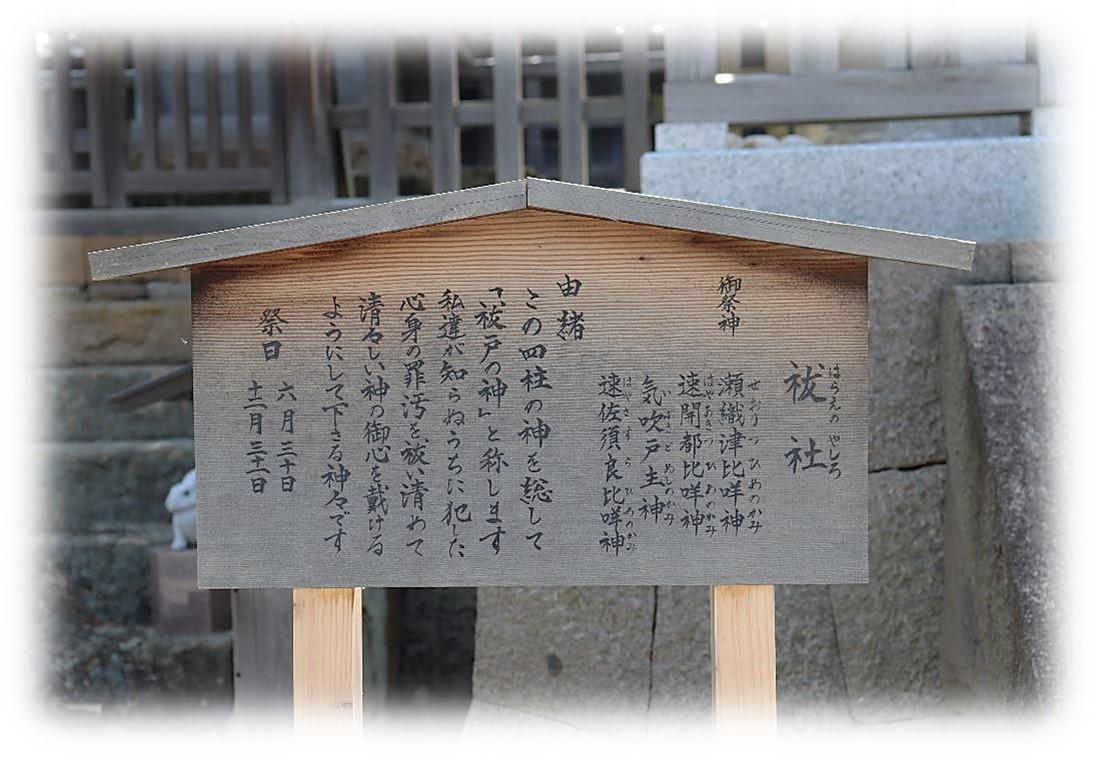 祓社
はらえのやしろ
御祭神
瀬織津比咩神
せおりつひめのかみ
速開都比咩神
はやあきつひめのかみ
気吹戸主神
いぶきどぬしのかみ
速佐須良比咩神
はやさすらひめのかみ
由緒
この四柱の神を総して
「祓戸の神」と称します
私達が知らぬうちに犯した
心身の罪汚を、祓い清めて
清々しい神の御心を戴ける
ようにして下さる神々です
祭日
六月三十日
十二月三十一日